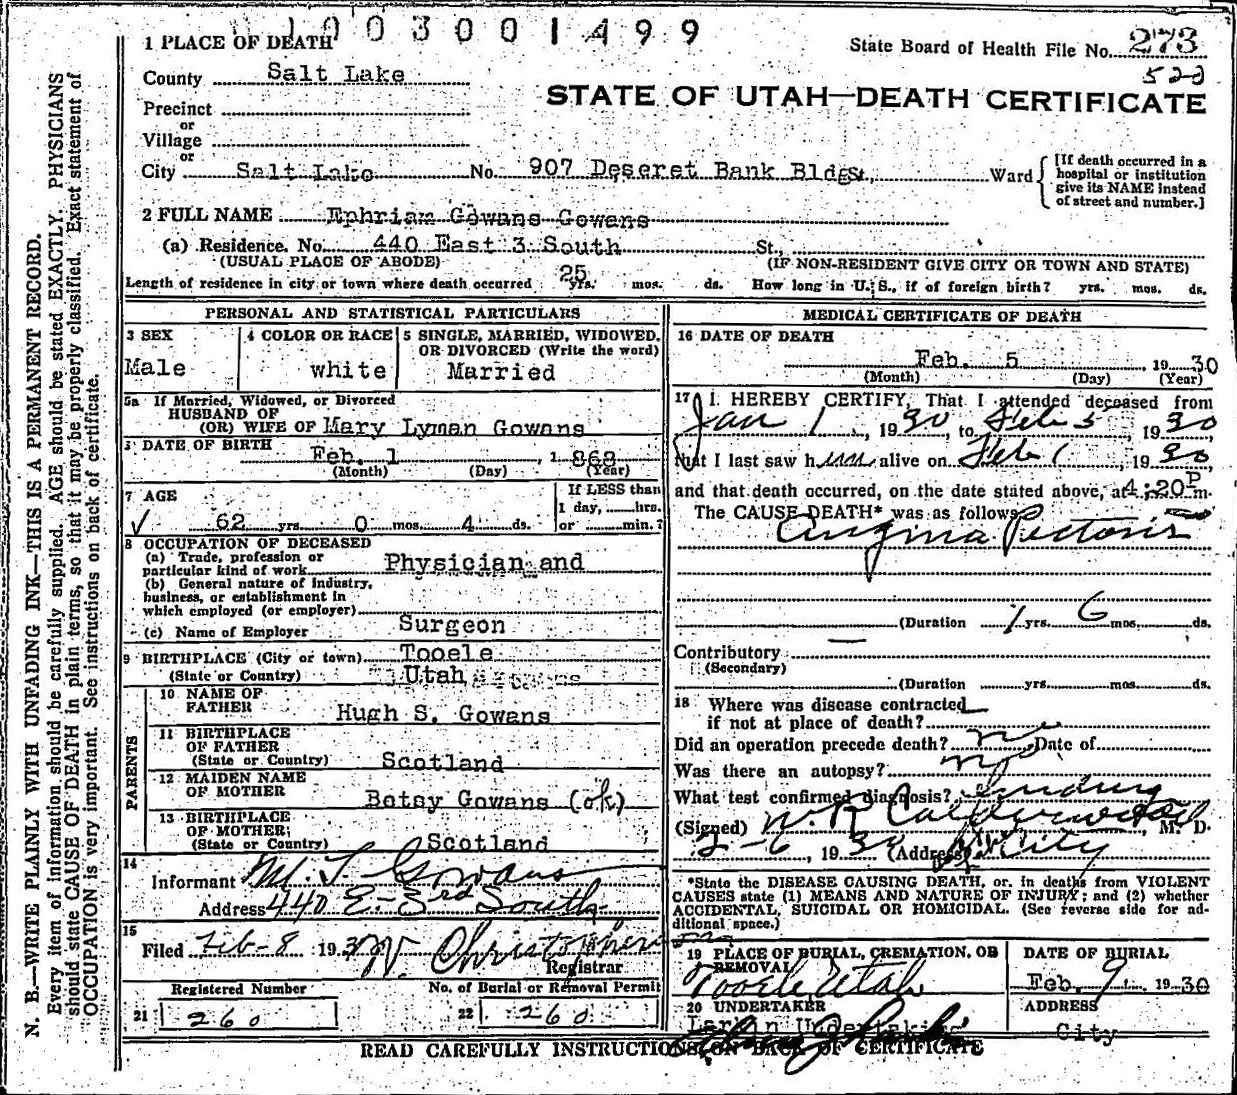 1003001499
1 PLACE OF DEATH
State Board of Health File No. 273
County Salt Lake
520
STATE OF UTAH—DEATH CERTIFICATE
Precinct
or
Village
or
City Salt Lake No. 907 Deseret Bank Bldg St., Ward
[If death occurred in a hospital or institution give its NAME instead of street and number.]
2 FULL NAME Ephriam Gowans Gowans
(a) Residence. No. 440 East 3 South St.,
(USUAL PLACE OF ABODE) (IF NON-RESIDENT GIVE CITY OR TOWN AND STATE)
Length of residence in city or town where death occurred 25 yrs. mos. ds. How long in U. S., if of foreign birth? yrs. mos. ds.
PERSONAL AND STATISTICAL PARTICULARS
3 SEX
Male
4 COLOR OR RACE
white
5 SINGLE, MARRIED, WIDOWED, OR DIVORCED (Write the word)
Married
5a If Married, Widowed, or Divorced
HUSBAND OF
(OR) WIFE OF Mary Lyman Gowans
DATE OF BIRTH Feb. 1, 1868
(Month) (Day) (Year)
7 AGE
62 yrs. 0 mos. 4 ds.
If LESS than
1 day, hrs.
or min.?
8 OCCUPATION OF DECEASED
(a) Trade, profession or
particular kind of work Physician and
(b) General nature of industry,
business, or establishment in
which employed (or employer)
(c) Name of Employer Surgeon
9 BIRTHPLACE (City or town) Tooele
(State or Country) Utah
PARENTS
10 NAME OF
FATHER Hugh S. Gowans
11 BIRTHPLACE
OF FATHER
(State or Country) Scotland
12 MAIDEN NAME
OF MOTHER Betsy Gowans (ok)
13 BIRTHPLACE
OF MOTHER;
(State or Country) Scotland
14
Informant M. L. Gowans
Address 440 E-3rd South
15
Filed Feb-8 1930
Registrar
Registered Number
21 260
No. of Burial or Removal Permit
22 260
MEDICAL CERTIFICATE OF DEATH
16 DATE OF DEATH
Feb. 5, 1930
(Month) (Day) (Year)
17 I HEREBY CERTIFY, That I attended deceased from
Jan 1, 1930, to Feb 5, 1930,
that I last saw him alive on Feb 1, 1930,
and that death occurred, on the date stated above, at 4:20 P m.
The CAUSE DEATH* was as follows
Angina Pectoris
(Duration 1 yrs. 6 mos. ds.
Contributory —
(Secondary)
(Duration yrs. mos. ds.
18 Where was disease contracted
if not at place of death?
Did an operation precede death? no Date of
Was there an autopsy? no
What test confirmed diagnosis?
(Signed) W. R. Calderwood, M. D.
2-6, 1930 (Address) City
*State the DISEASE CAUSING DEATH, or in deaths from VIOLENT
CAUSES state (1) MEANS AND NATURE OF INJURY; and (2) whether
ACCIDENTAL, SUICIDAL OR HOMICIDAL. (See reverse side for ad-
ditional space.)
19 PLACE OF BURIAL, CREMATION, OR
REMOVAL
Tooele Utah
DATE OF BURIAL
Feb. 9 1930
20 UNDERTAKER
ADDRESS
City
READ CAREFULLY INSTRUCTIONS ON BACK OF CERTIFICATE
N. B.—WRITE PLAINLY WITH UNFADING INK—THIS IS A PERMANENT RECORD.
Every item of information should be carefully supplied. AGE should be stated EXACTLY. PHYSICIANS
should state CAUSE OF DEATH in plain terms, so that it may be properly classified. Exact statement of
OCCUPATION is very important. See instructions on back of certificate.